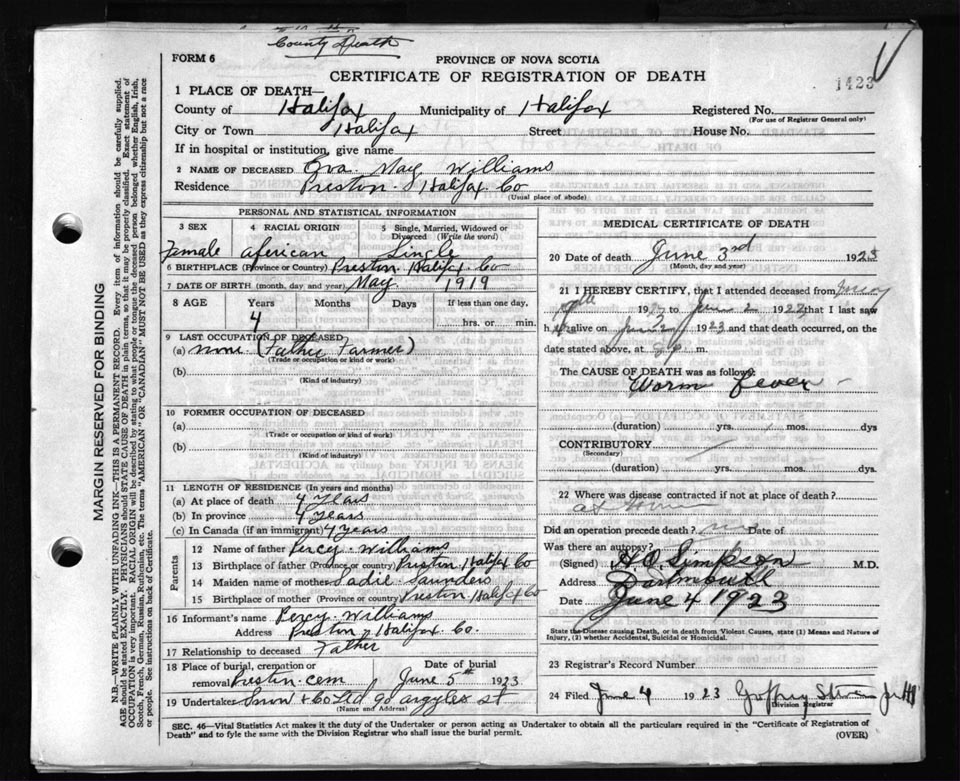 County Death
FORM 6
PROVINCE OF NOVA SCOTIA
CERTIFICATE OF REGISTRATION OF DEATH
1423
1 PLACE OF DEATH—
County of Halifax Municipality of Halifax Registered No.
(For use of Registrar General only)
City or Town Halifax Street House No.
If in hospital or institution, give name
2 NAME OF DECEASED Eva May Williams
Residence Preston Halifax Co
(Usual place of abode)
PERSONAL AND STATISTICAL INFORMATION
3 SEX 4 RACIAL ORIGIN 5 Single, Married, Widowed or Divorced (Write the word)
Female African Single
6 BIRTHPLACE (Province or Country) Preston Halifax Co
7 DATE OF BIRTH (month, day, and year) May 1919
8 AGE Years Months Days If less than one day,
4 hrs. or min.
9 LAST OCCUPATION OF DECEASED
(a) none (Father Farmer)
(Trade or occupation or kind or work)
(b)
(Kind of industry)
10 FORMER OCCUPATION OF DECEASED
(a)
(Trade or occupation or kind of work)
(b)
(Kind of industry)
11 LENGTH OF RESIDENCE (In years and months)
(a) At place of death 4 years
(b) In province 4 years
(c) In Canada (if an immigrant) 4 years
Parents
12 Name of father Percy Williams
13 Birthplace of father (Province or country) Preston Halifax Co
14 Maiden name of mother Sadie Saunders
15 Birthplace of mother (Province or country) Preston Halifax Co
16 Informant's name Percy Williams
Address Preston Halifax Co.
17 Relationship to deceased Father
18 Place of burial, cremation or removal Preston cem Date of burial June 5th 1923
19 Undertaker Snow & Co Ltd 90 argyle st
(Name and Address)
MEDICAL CERTIFICATE OF DEATH
20 Date of death June 3rd 1923
(Month, day and year)
21 I HEREBY CERTIFY, that I attended deceased from
19 to June 2 192 that I last saw
h alive on June 2 1923 and that death occurred, on the
date stated above, at m.
The CAUSE OF DEATH was as follows:
Worm Fever
(duration) yrs. mos. dys
CONTRIBUTORY
(Secondary)
(duration) yrs. mos. dys
22 Where was disease contracted if not at place of death?
at home
Did an operation precede death? no Date of
Was there an autopsy?
(Signed) H.O. Simpson M.D.
Address Dartmouth
Date June 4 1923
State the Disease causing Death, or in death from Violent Causes, state (1) Means and Nature of
Injury, (1) whether Accidental, Suicidal or Homicidal.
23 Registrar's Record Number
24 Filed June 4 1923
Division Registrar
SEC. 46—Vital Statistics Act makes it the duty of the Undertaker or person acting as Undertaker to obtain all the particulars required in the "Certificate of Registration of
Death" and to fyle the same with the Division Registrar who shall issue the burial permit. (OVER)
MARGIN RESERVED FOR BINDING
N.B.—WRITE PLAINLY WITH UNFADING INK—THIS IS A PERMANENT RECORD. Every item of information should be carefully supplied.
AGE should be stated EXACTLY. PHYSICIANS should STATE CAUSE OF DEATH in plain terms, so that it may be properly classified. Exact statement of
OCCUPATION is very important. RACIAL ORIGIN will be described by stating to what people or tongue the deceased person belonged whether English, Irish,
Scotch, French, German, Russian, Ruthenian, etc. The terms "AMERICAN" OR "CANADIAN" MUST NOT BE USED as they express citizenship but not a race
or people. See instructions on back of Certificate.